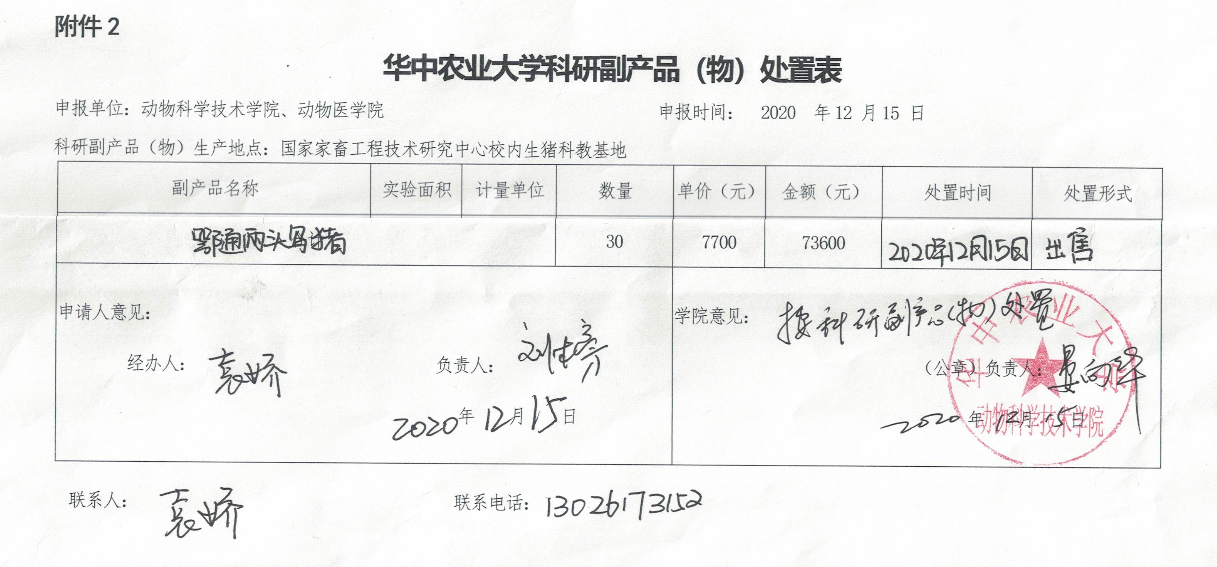 附件 2
华中农业大学科研副产品（物）处置表
申报单位：动物科学技术学院、动物医学院 申报时间： 2020 年 12 月 15 日
科研副产品（物）生产地点：国家家畜工程技术研究中心校内生猪科教基地
副产品名称 实验面积 计量单位 数量 单价（元） 金额（元） 处置时间 处置形式
鄂通两头乌猪 30 7700 73600 2020年12月15日 出售
申请人意见： 学院意见： 按科研副产品(物)处置
经办人： 袁娇 负责人： （公章）负责人：
2020年12月15日 2020年12月15日
华中农业大学
动物科学技术学院
联系人： 袁娇 联系电话：13026173152